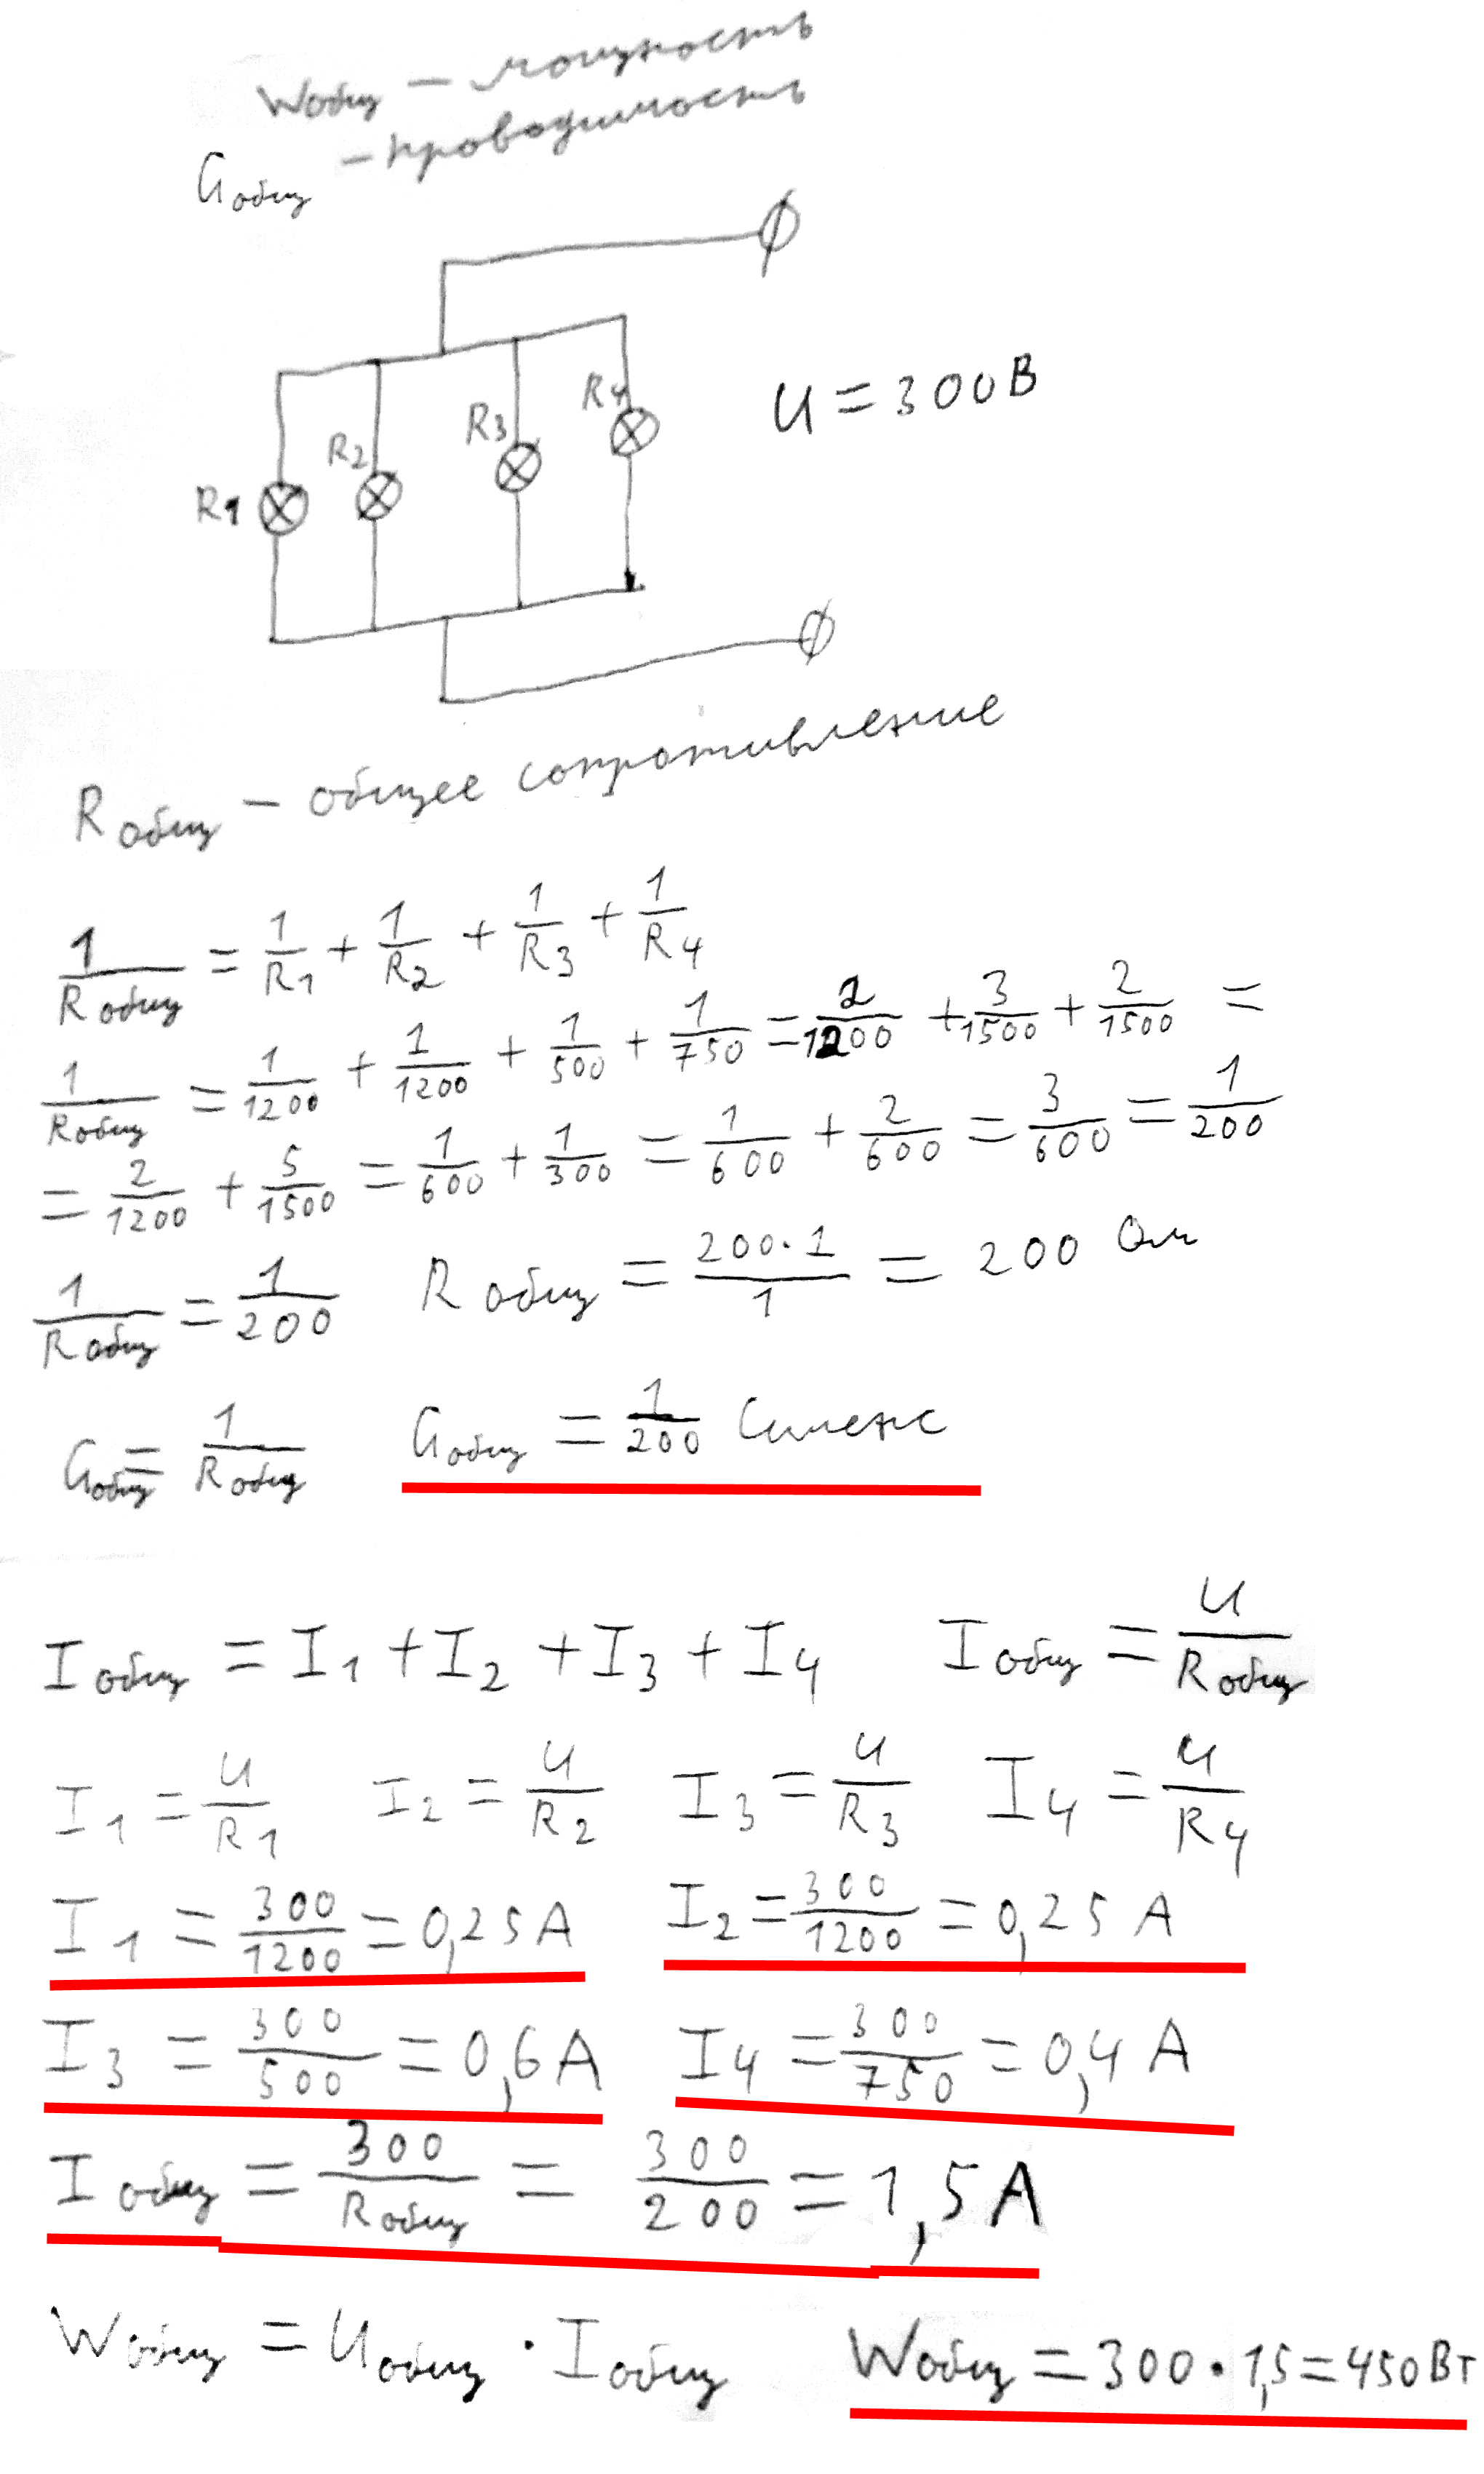 Wобщ – мощность
Gобщ – проводимость
U = 300 В
R1 R2 R3 R4
Rобщ – общее сопротивление
1/Rобщ = 1/R1 + 1/R2 + 1/R3 + 1/R4
1/Rобщ = 1/1200 + 1/1200 + 1/500 + 1/750 = 2/1200 + 3/1500 + 2/1500 =
= 2/1200 + 5/1500 = 1/600 + 1/300 = 1/600 + 2/600 = 3/600 = 1/200
1/Rобщ = 1/200 Rобщ = 200·1/1 = 200 Ом
Gобщ = 1/Rобщ Gобщ = 1/200 Сименс
Iобщ = I1 + I2 + I3 + I4 Iобщ = U/Rобщ
I1 = U/R1 I2 = U/R2 I3 = U/R3 I4 = U/R4
I1 = 300/1200 = 0,25 А I2 = 300/1200 = 0,25 А
I3 = 300/500 = 0,6 А I4 = 300/750 = 0,4 А
Iобщ = 300/Rобщ = 300/200 = 1,5 А
Wобщ = Uобщ · Iобщ Wобщ = 300 · 1,5 = 450 Вт